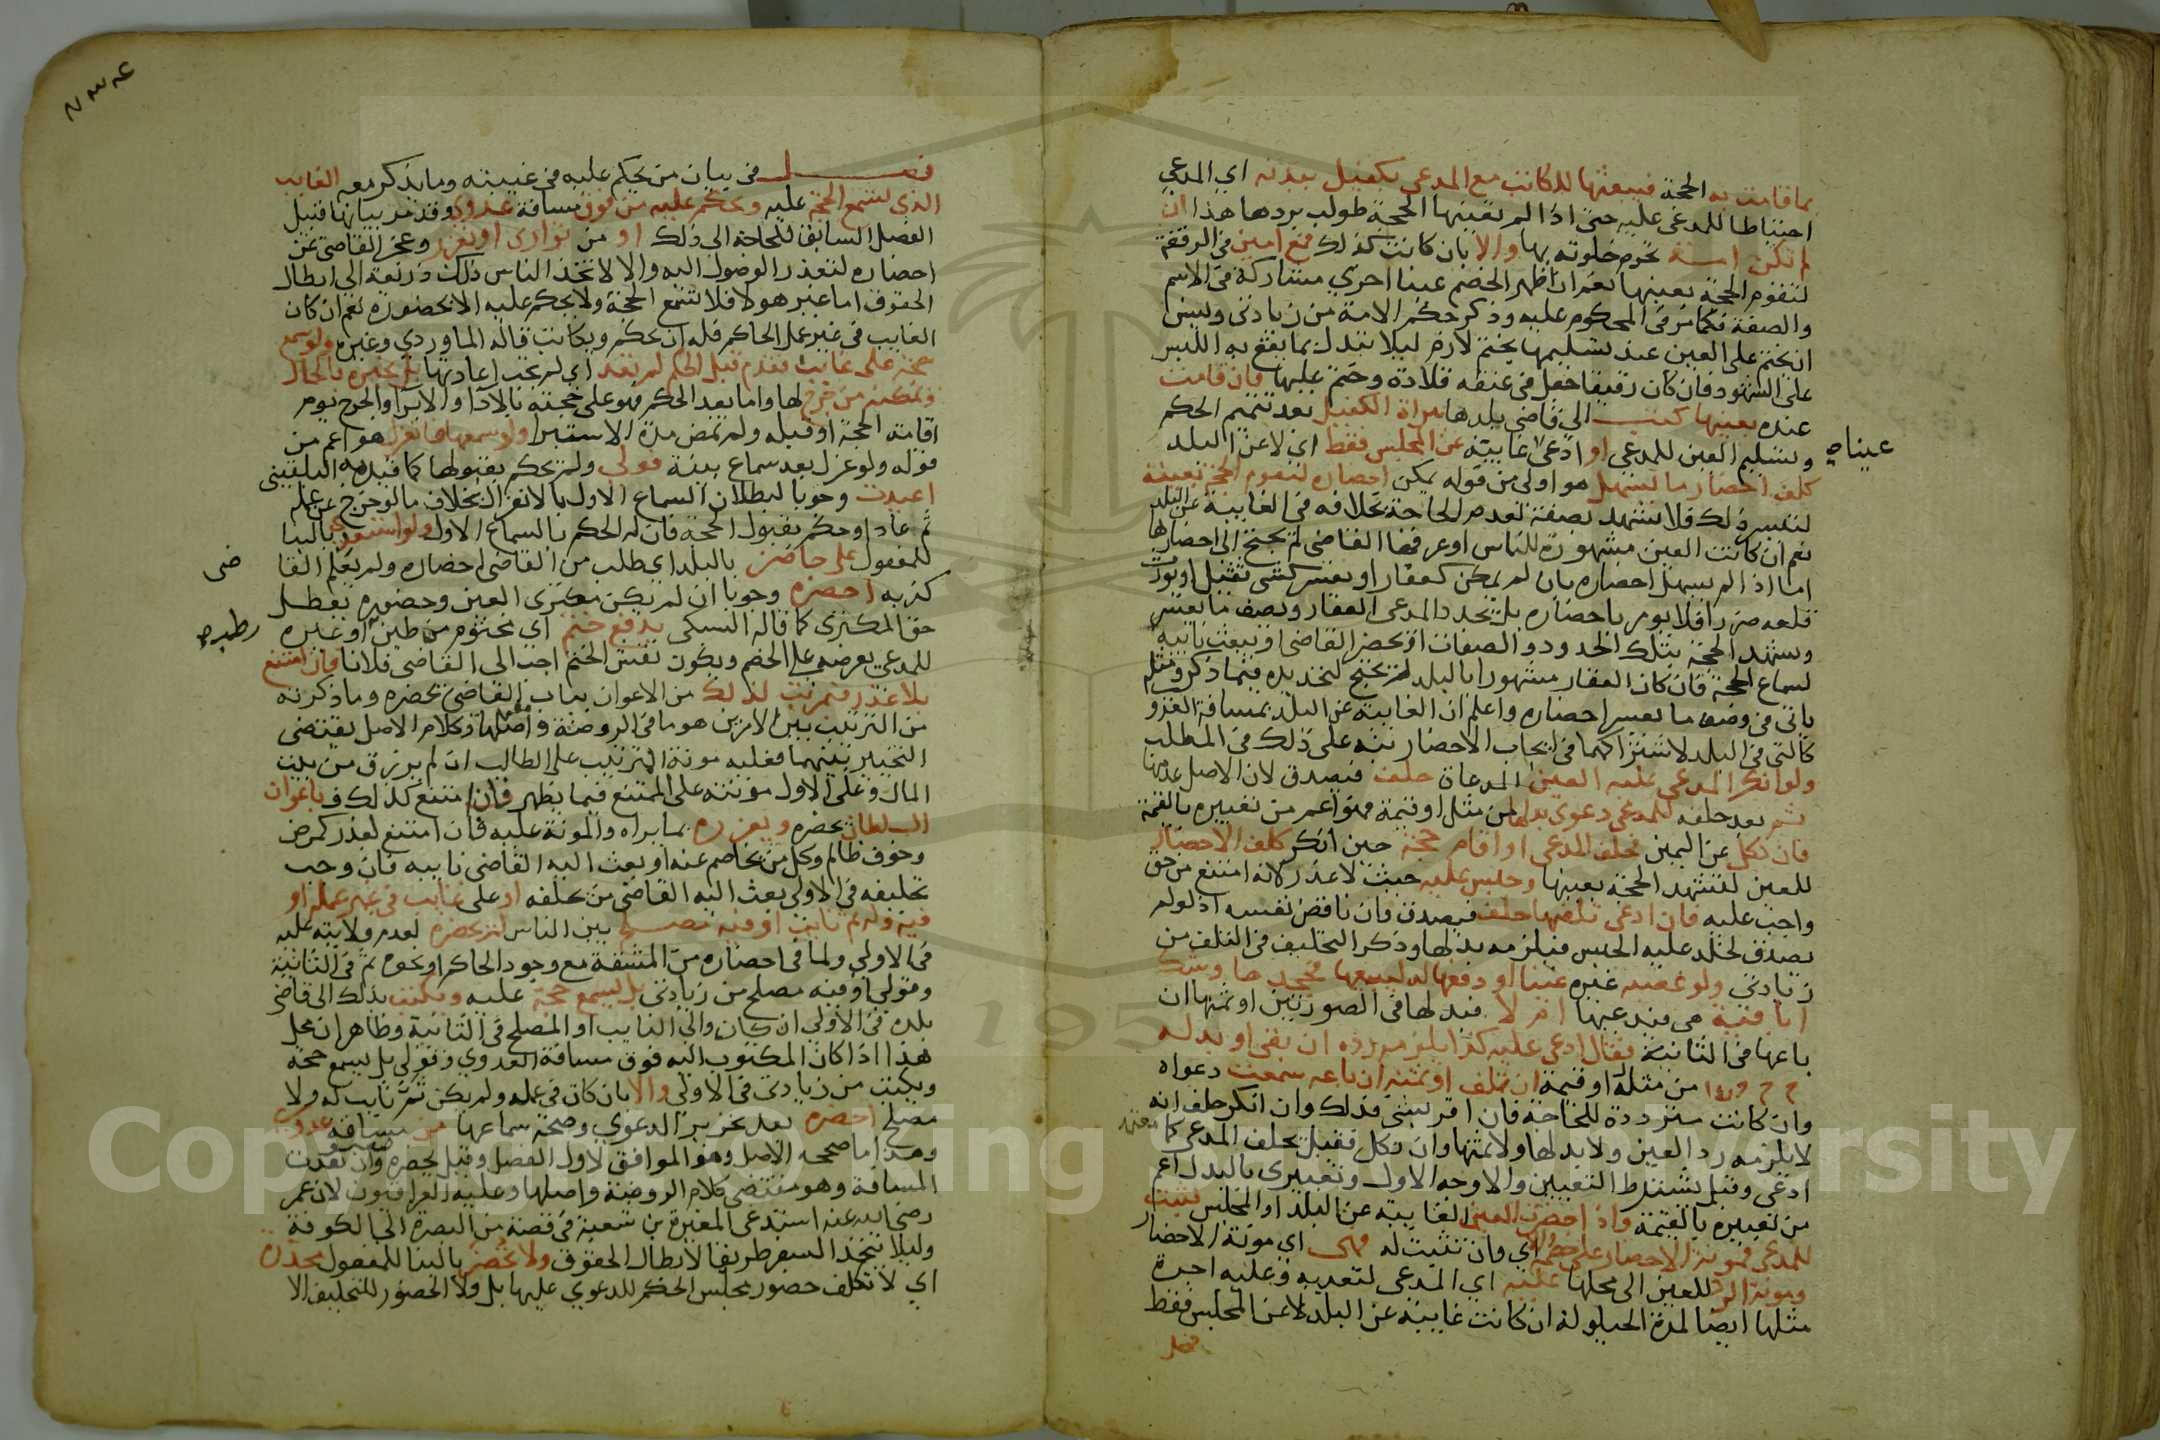 بما قامت به الحجة فيبعثها للكاتب مع المدعي بكفيل ببدنه اي المدعي
احتياطا للمدعى عليه حتى اذا لم تعينها الحجة طولب بردها هذا ان
لم تكن امة تحرم خلوته بها والا بان كانت كذلك فمع امين في الرفقة
لتقوم الحجة بعينها نعم ان اظهر الخصم عينا اخرى مشاركة في الاسم
والصفة فكما مر في المحكوم عليه وذكر حكم الامة من زيادتي ويسن
ان يختم على العين عند تسليمها بختم لازم ليلا تبدل بما يقع به اللبس
على الشهود فان كان رقيقا جعل في عنقه قلادة وختم عليها فان قامت
عنده بعينها كتب الى قاضي بلدها ببراة الكفيل بعد تتميم الحكم
وتسليم العين للمدعي او ادعى عينا غايبة عن المجلس فقط اي لا عن البلد
كلف احضار ما يسهل هو اولى من قوله يمكن احضاره لتقوم الحجة بعينه
لتيسر ذلك فلا تشهد بصفة لعدم الحاجة بخلافه في الغايبة عن البلد
نعم ان كانت العين مشهورة للناس او عرفها القاضي لم يحتج الى احضارها
اما اذا لم يسهل احضاره بان لم يمكن كعقار او يعسر كشي ثقيل او يورث
قلعه ضررا فلا يومر باحضاره بل يحدد المدعي العقار ويصف ما يعسر
وتشهد الحجة بتلك الحدود والصفات او يحضر القاضي او يبعث نايبه
لسماع الحجة فان كان العقار مشهورا بالبلد لم يحتج لتحديده فيما ذكر ومثله
ياتي في وصف ما يعسر احضاره واعلم ان الغايبة عن البلد بمسافة العدوى
كالتي في البلد لاشتراكهما في ايجاب الاحضار نبه على ذلك في المطلب
ولو انكر المدعى عليه العين المدعاة حلف فيصدق لان الاصل عدمها
ثم بعد حلفه للمدعي دعوى بدلها من مثل او قيمة فهو اعم من تعبيره بالقيمة
فان نكل عن اليمين فحلف المدعي او اقام حجة حين انكر كلف الاحضار
للعين لتشهد الحجة بعينها وحبس عليه حيث لا عذر لانه امتنع من حق
واجب عليه فان ادعى تلفها حلف فيصدق وان ناقض نفسه اذ لو لم
يصدق لخلد عليه الحبس فيلزمه بدلها وذكر التحليف في التلف من
زيادتي ولو غصبه غيره عينا او دفعها له ليبيعها فجحدها وشك
اباقية هي فيدعيها ام لا فبدلها في الصورتين او ثمنها ان
باعها في الثانية فقال ادعي عليه كذا يلزمه رده ان بقي او بدله
من مثله او قيمة ان تلف او ثمنه ان باعه سمعت دعواه
وان كانت مترددة للحاجة فان اقر بشي فذلك وان انكر حلف انه
لا يلزمه رد العين ولا بدلها ولا ثمنها وان نكل فقيل يحلف المدعي كما
ادعى وقيل يشترط التعيين والاوجه الاول وتعبيري بالبدل اعم
من تعبيره بالقيمة واذا احضرت العين الغايبة عن البلد او المجلس فثبتت
للمدعي فمونة الاحضار على خصمه اي وان تثبت له فهي اي مونة الاحضار
ومونة الرد للعين الى محلها عليه اي المدعي لتعديه وعليه اجرة
مثلها ايضا لمدة الحيلولة ان كانت غايبة عن البلد لا عن المجلس فقط
فصل
عينا صح
فصل في بيان من يحكم عليه في غيبته وما يذكر معه الغايب
الذي تسمع الحجة عليه ويحكم عليه من فوق مسافة عدوى وقد مر بيانها قبيل
الفصل السابق للحاجة الى ذلك او من توارى او تعزز وعجز القاضي عن
احضاره لتعذر الوصول اليه والا لاتخذ الناس ذلك ذريعة الى ابطال
الحقوق اما غير هولا فلا تسمع الحجة ولا يحكم عليه الا بحضوره نعم ان كان
الغايب في غير عمل الحاكم فله ان يحكم ويكاتب قاله الماوردي وغيره ولو سمع
حجة على غايب فقدم قبل الحكم لم تعد اي لم تجب اعادتها بل يخبره بالحال
ويمكنه من جرح لها واما بعد الحكم فهو على حجته بالاداء والابرا والجرح يوم
اقامة الحجة او قبله ولم تمض مدة الاستبرا ولو سمعها فانعزل هو اعم من
قوله ولو عزل بعد سماع بينة فولى ولم يحكم بقبولها كما قيده به البلقيني
اعيدت وجوبا لبطلان السماع الاول بالانعزال بخلاف ما لو خرج عن عمله
ثم عاد او حكم بقبول الحجة فان له الحكم بالسماع الاول ولو استعدي بالبنا
للمفعول على حاضر بالبلد اي طلب من القاضي احضاره ولم يعلم القا
ضي
كذبه احضره وجوبا ان لم يكن مكترى العين وحضوره يعطل
حق المكتري كما قاله السبكي بدفع ختم اي مختوم من طين او غيره
رطبه
للمدعي يعرضه على الخصم ويكون نقش الختم اجب الى القاضي فلانا فان امتنع
بلا عذر فبمرتب لذلك من الاعوان بباب القاضي يحضره وما ذكرته
من الترتيب بين الامرين هو ما في الروضة واصلها وكلام الاصل يقتضي
التخيير بينهما فعليه مونة المرتب على الطالب ان لم يرزق من بيت
المال وعلى الاول مونته على الممتنع فيما يظهر فان امتنع كذلك فباعوان
السلطان يحضره ويعزره بما يراه والمونة عليه فان امتنع لعذر كمرض
وخوف ظالم وكل من يخاصم عنه او بعث اليه القاضي نايبه فان وجب
تحليفه في الاولى بعث اليه القاضي من يحلفه او على غايب في غير عمله او
فيه وله ثم نايب او فيه مصلح بين الناس لم يحضره لعدم ولايته عليه
في الاولى ولما في احضاره من المشقة مع وجود الحاكم او نحوه ثم في الثانية
وقولي او فيه مصلح من زيادتي بل يسمع حجة عليه ويكتب بذلك الى قاضي
بلده في الاولى ان كان والى النايب او المصلح في الثانية وظاهر ان محل
هذا اذا كان المكتوب اليه فوق مسافة العدوى وقولي بل يسمع حجة
ويكتب من زيادتي في الاولى والا بان كان في عمله ولم يكن ثم نايب له ولا
مصلح احضره بعد تحرير الدعوى وصحة سماعها من مسافة عدوى
وهذا ما صححه الاصل وهو الموافق لاول الفصل وقيل يحضره وان بعدت
المسافة وهو مقتضى كلام الروضة واصلها وعليه العراقيون لان عمر
رضي الله عنه استدعى المغيرة بن شعبة في قصة من البصرة الى الكوفة
وليلا يتخذ السفر طريقا لابطال الحقوق ولا تحضر بالبنا للمفعول مخدرة
اي لا تكلف حضور مجلس الحكم للدعوى عليها بل ولا الحضور للتحليف الا
Copyright © King Saud University
195